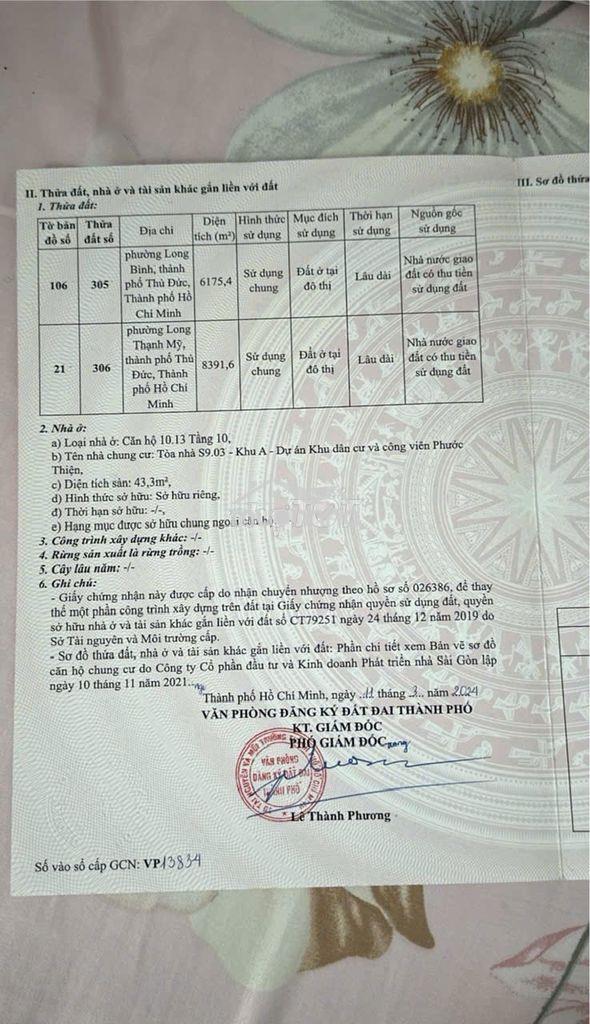 II. Thửa đất, nhà ở và tài sản khác gắn liền với đất
III. Sơ đồ thửa
1. Thửa đất:
Tờ bản đồ số | Thửa đất số | Địa chỉ | Diện tích (m²) | Hình thức sử dụng | Mục đích sử dụng | Thời hạn sử dụng | Nguồn gốc sử dụng
106 | 305 | phường Long Bình, thành phố Thủ Đức, Thành phố Hồ Chí Minh | 6175,4 | Sử dụng chung | Đất ở tại đô thị | Lâu dài | Nhà nước giao đất có thu tiền sử dụng đất
21 | 306 | phường Long Thạnh Mỹ, thành phố Thủ Đức, Thành phố Hồ Chí Minh | 8391,6 | Sử dụng chung | Đất ở tại đô thị | Lâu dài | Nhà nước giao đất có thu tiền sử dụng đất
2. Nhà ở:
a) Loại nhà ở: Căn hộ 10.13 Tầng 10,
b) Tên nhà chung cư: Tòa nhà S9.03 - Khu A - Dự án Khu dân cư và công viên Phước
Thiện,
c) Diện tích sàn: 43,3m²,
d) Hình thức sở hữu: Sở hữu riêng,
đ) Thời hạn sở hữu: -/-,
e) Hạng mục được sở hữu chung ngoài căn hộ
3. Công trình xây dựng khác: -/-
4. Rừng sản xuất là rừng trồng: -/-
5. Cây lâu năm: -/-
6. Ghi chú:
- Giấy chứng nhận này được cấp do nhận chuyển nhượng theo hồ sơ số 026386, để thay
thế một phần công trình xây dựng trên đất tại Giấy chứng nhận quyền sử dụng đất, quyền
sở hữu nhà ở và tài sản khác gắn liền với đất số CT79251 ngày 24 tháng 12 năm 2019 do
Sở Tài nguyên và Môi trường cấp.
- Sơ đồ thửa đất, nhà ở và tài sản khác gắn liền với đất: Phần chi tiết xem Bản vẽ sơ đồ
căn hộ chung cư do Công ty Cổ phần đầu tư và Kinh doanh Phát triển nhà Sài Gòn lập
ngày 10 tháng 11 năm 2021.
Thành phố Hồ Chí Minh, ngày 11 tháng 3 năm 2024
VĂN PHÒNG ĐĂNG KÝ ĐẤT ĐAI THÀNH PHỐ
KT. GIÁM ĐỐC
PHÓ GIÁM ĐỐC
VĂN PHÒNG
ĐĂNG KÝ ĐẤT ĐAI
THÀNH PHỐ
Lê Thành Phương
Số vào sổ cấp GCN: VP13834